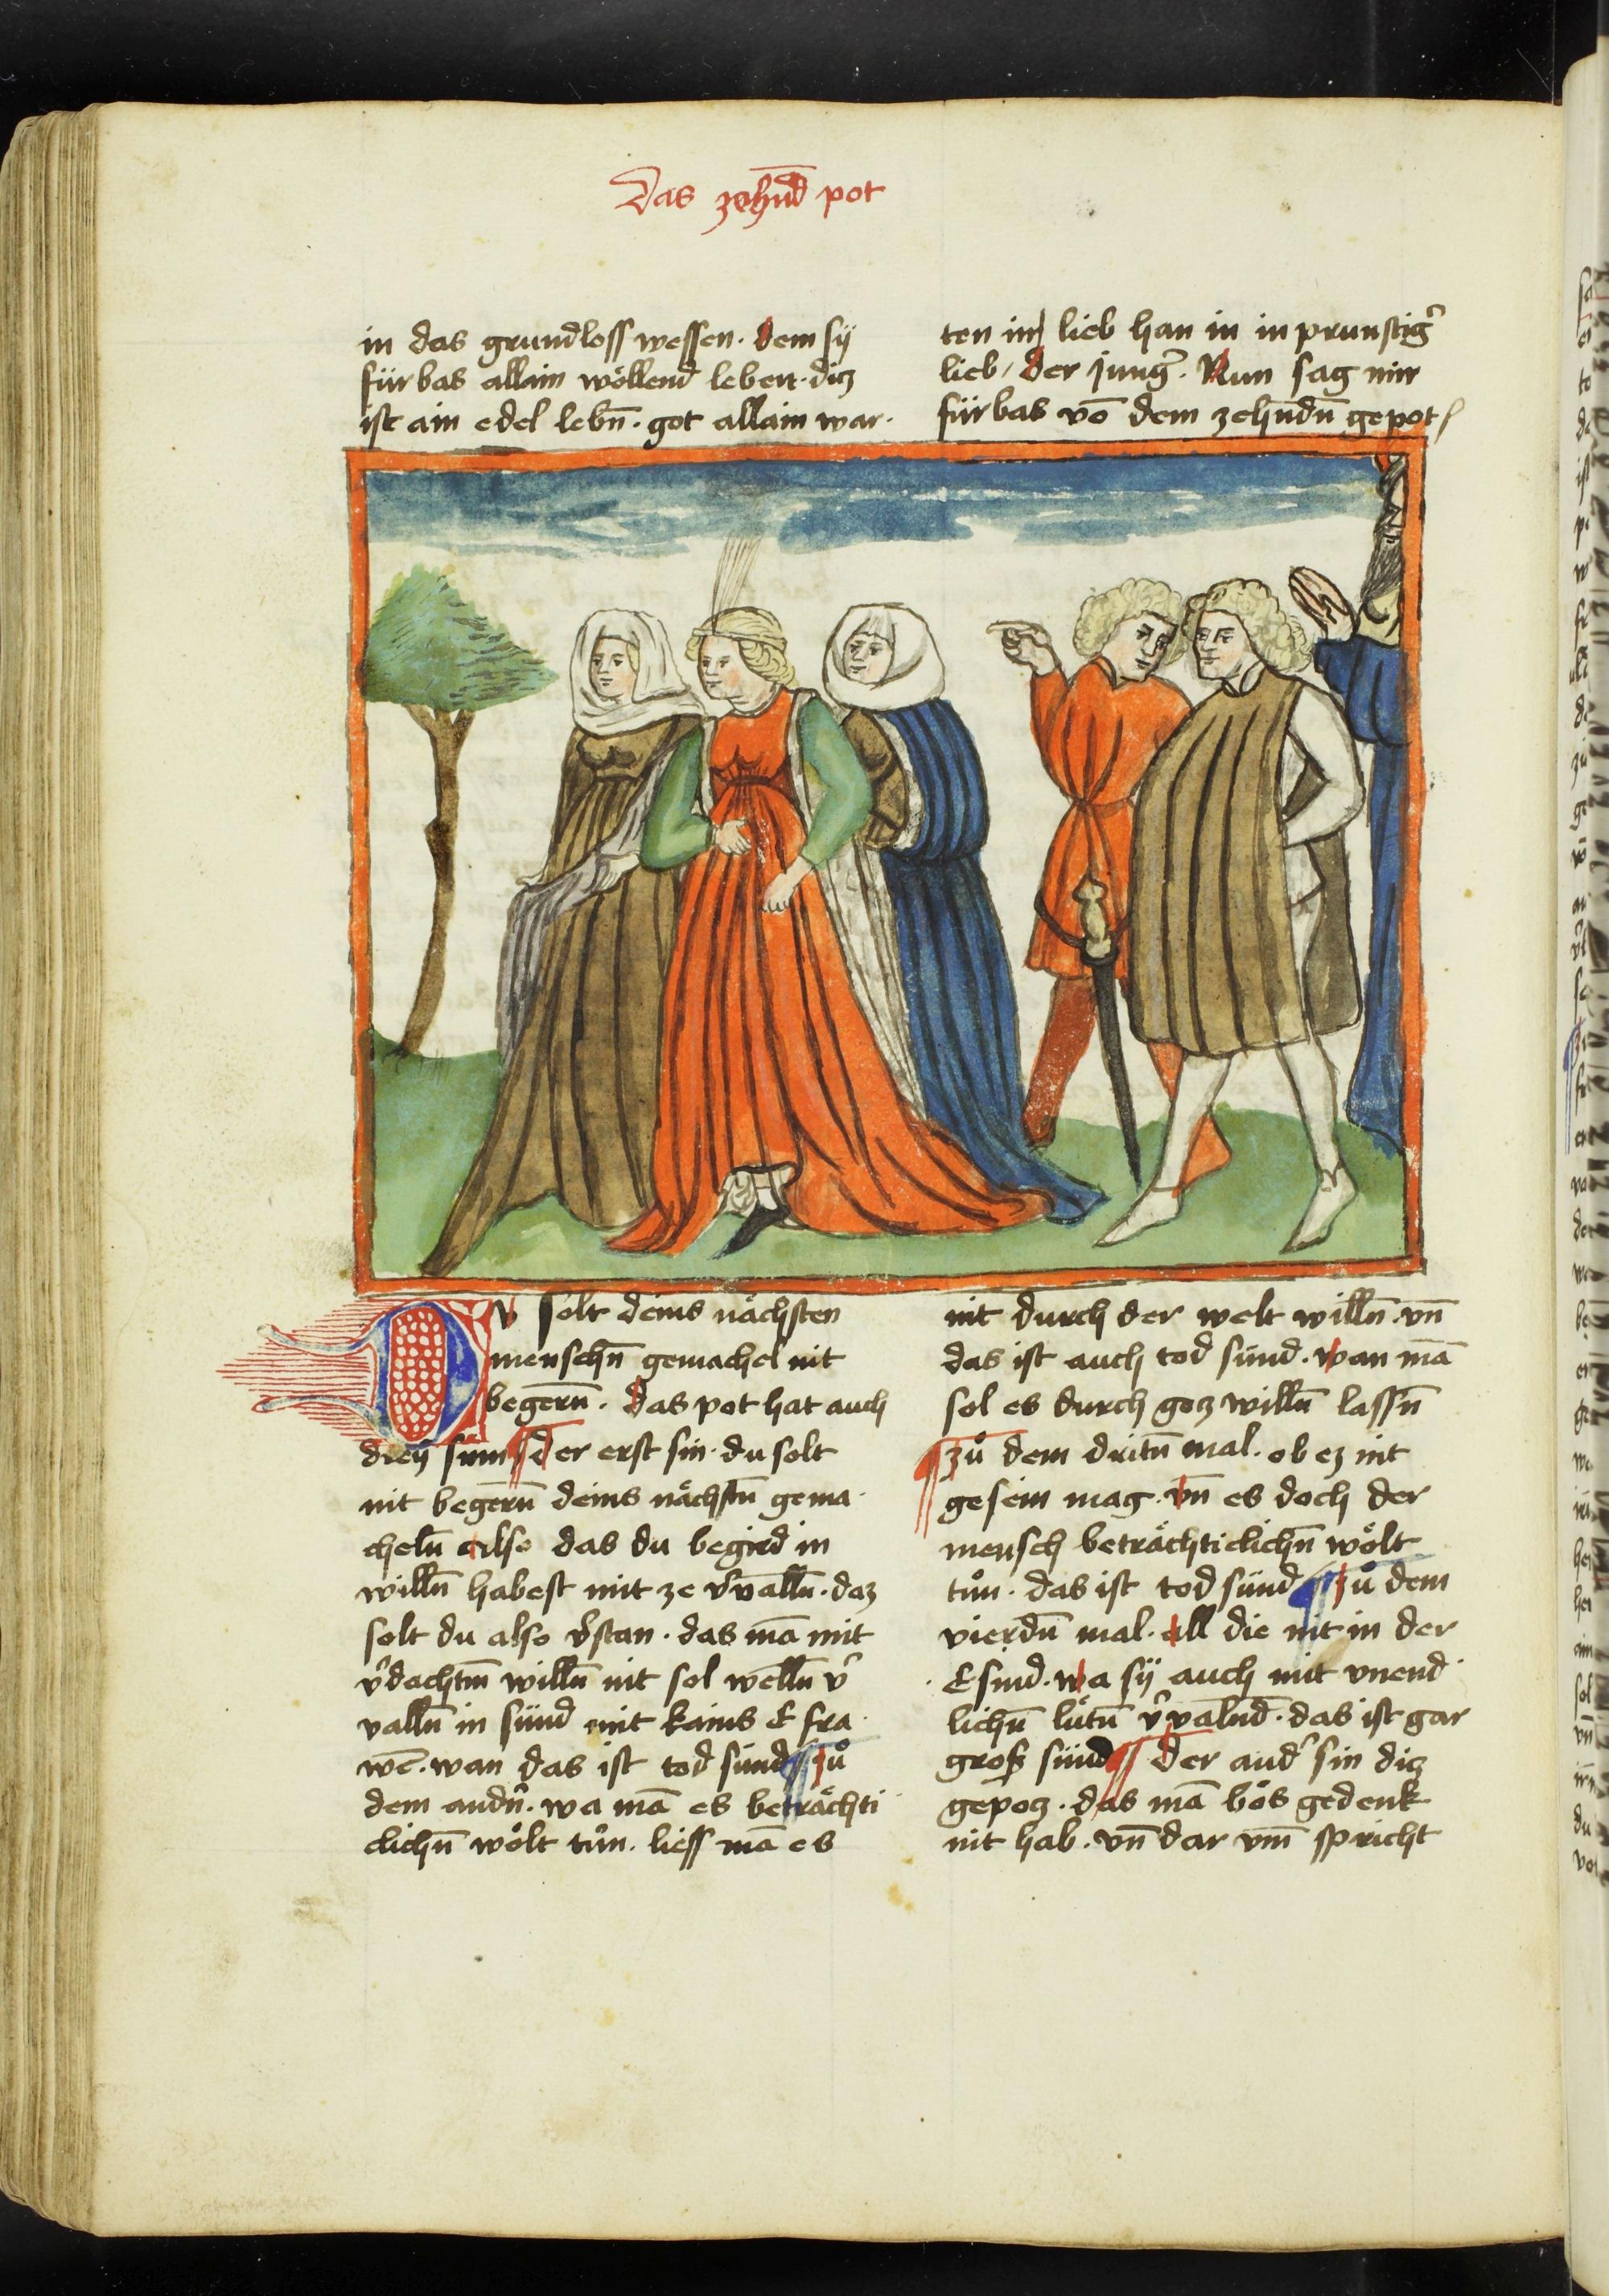 Das zehnd̄ pot
in das grundloss wessen. dem sÿ
fürbas allain wöllend leben. dicz
ist ain edel lebn̄. got allain war.
ten in lieb han in inprunstig̉
lieb / der jung̉. Nun sag mir
fürbas vō dem zehn̄dn̄ gepot /
DV solt deins nächsten
menschn̄ gemachel nit
begern̄. das pot hat auch
dreÿ sinn der erst sin. du solt
nit begern̄ deins nächstn̄ gema
cheln̄ also das du begird in
willn̄ habest mit ze v̉valln̄. daz
solt du also v̉stan. das mā mit
v̉dachtm̄ willn̄ nit sol welln̄ v̉
valln̄ in sünd mit kains E fra
wē. wan das ist tod sünd zů
dem andn̉. wa mā es beträchti
clichn̄ wölt tůn. liess mā es
nit durch der welt willn̄. vn̄
das ist auch tod sünd. wan mā
sol es durch gocz willn̄ lassn̄
zů dem dritn̄ mal. ob ez nit
gesein mag. vn̄ es doch der
mensch beträchticlichn̄ wölt
tůn. das ist tod sünd zů dem
vierdn̄ mal. all die nit in der
E sind. wa sÿ auch mit vnend
lichn̄ lütn̄ v̉valnd̄. das ist gar
groß sünd der and̉ sin dicz
gepocz. das mā bös gedenk
nit hab. vn̄ dar vm̄ spricht